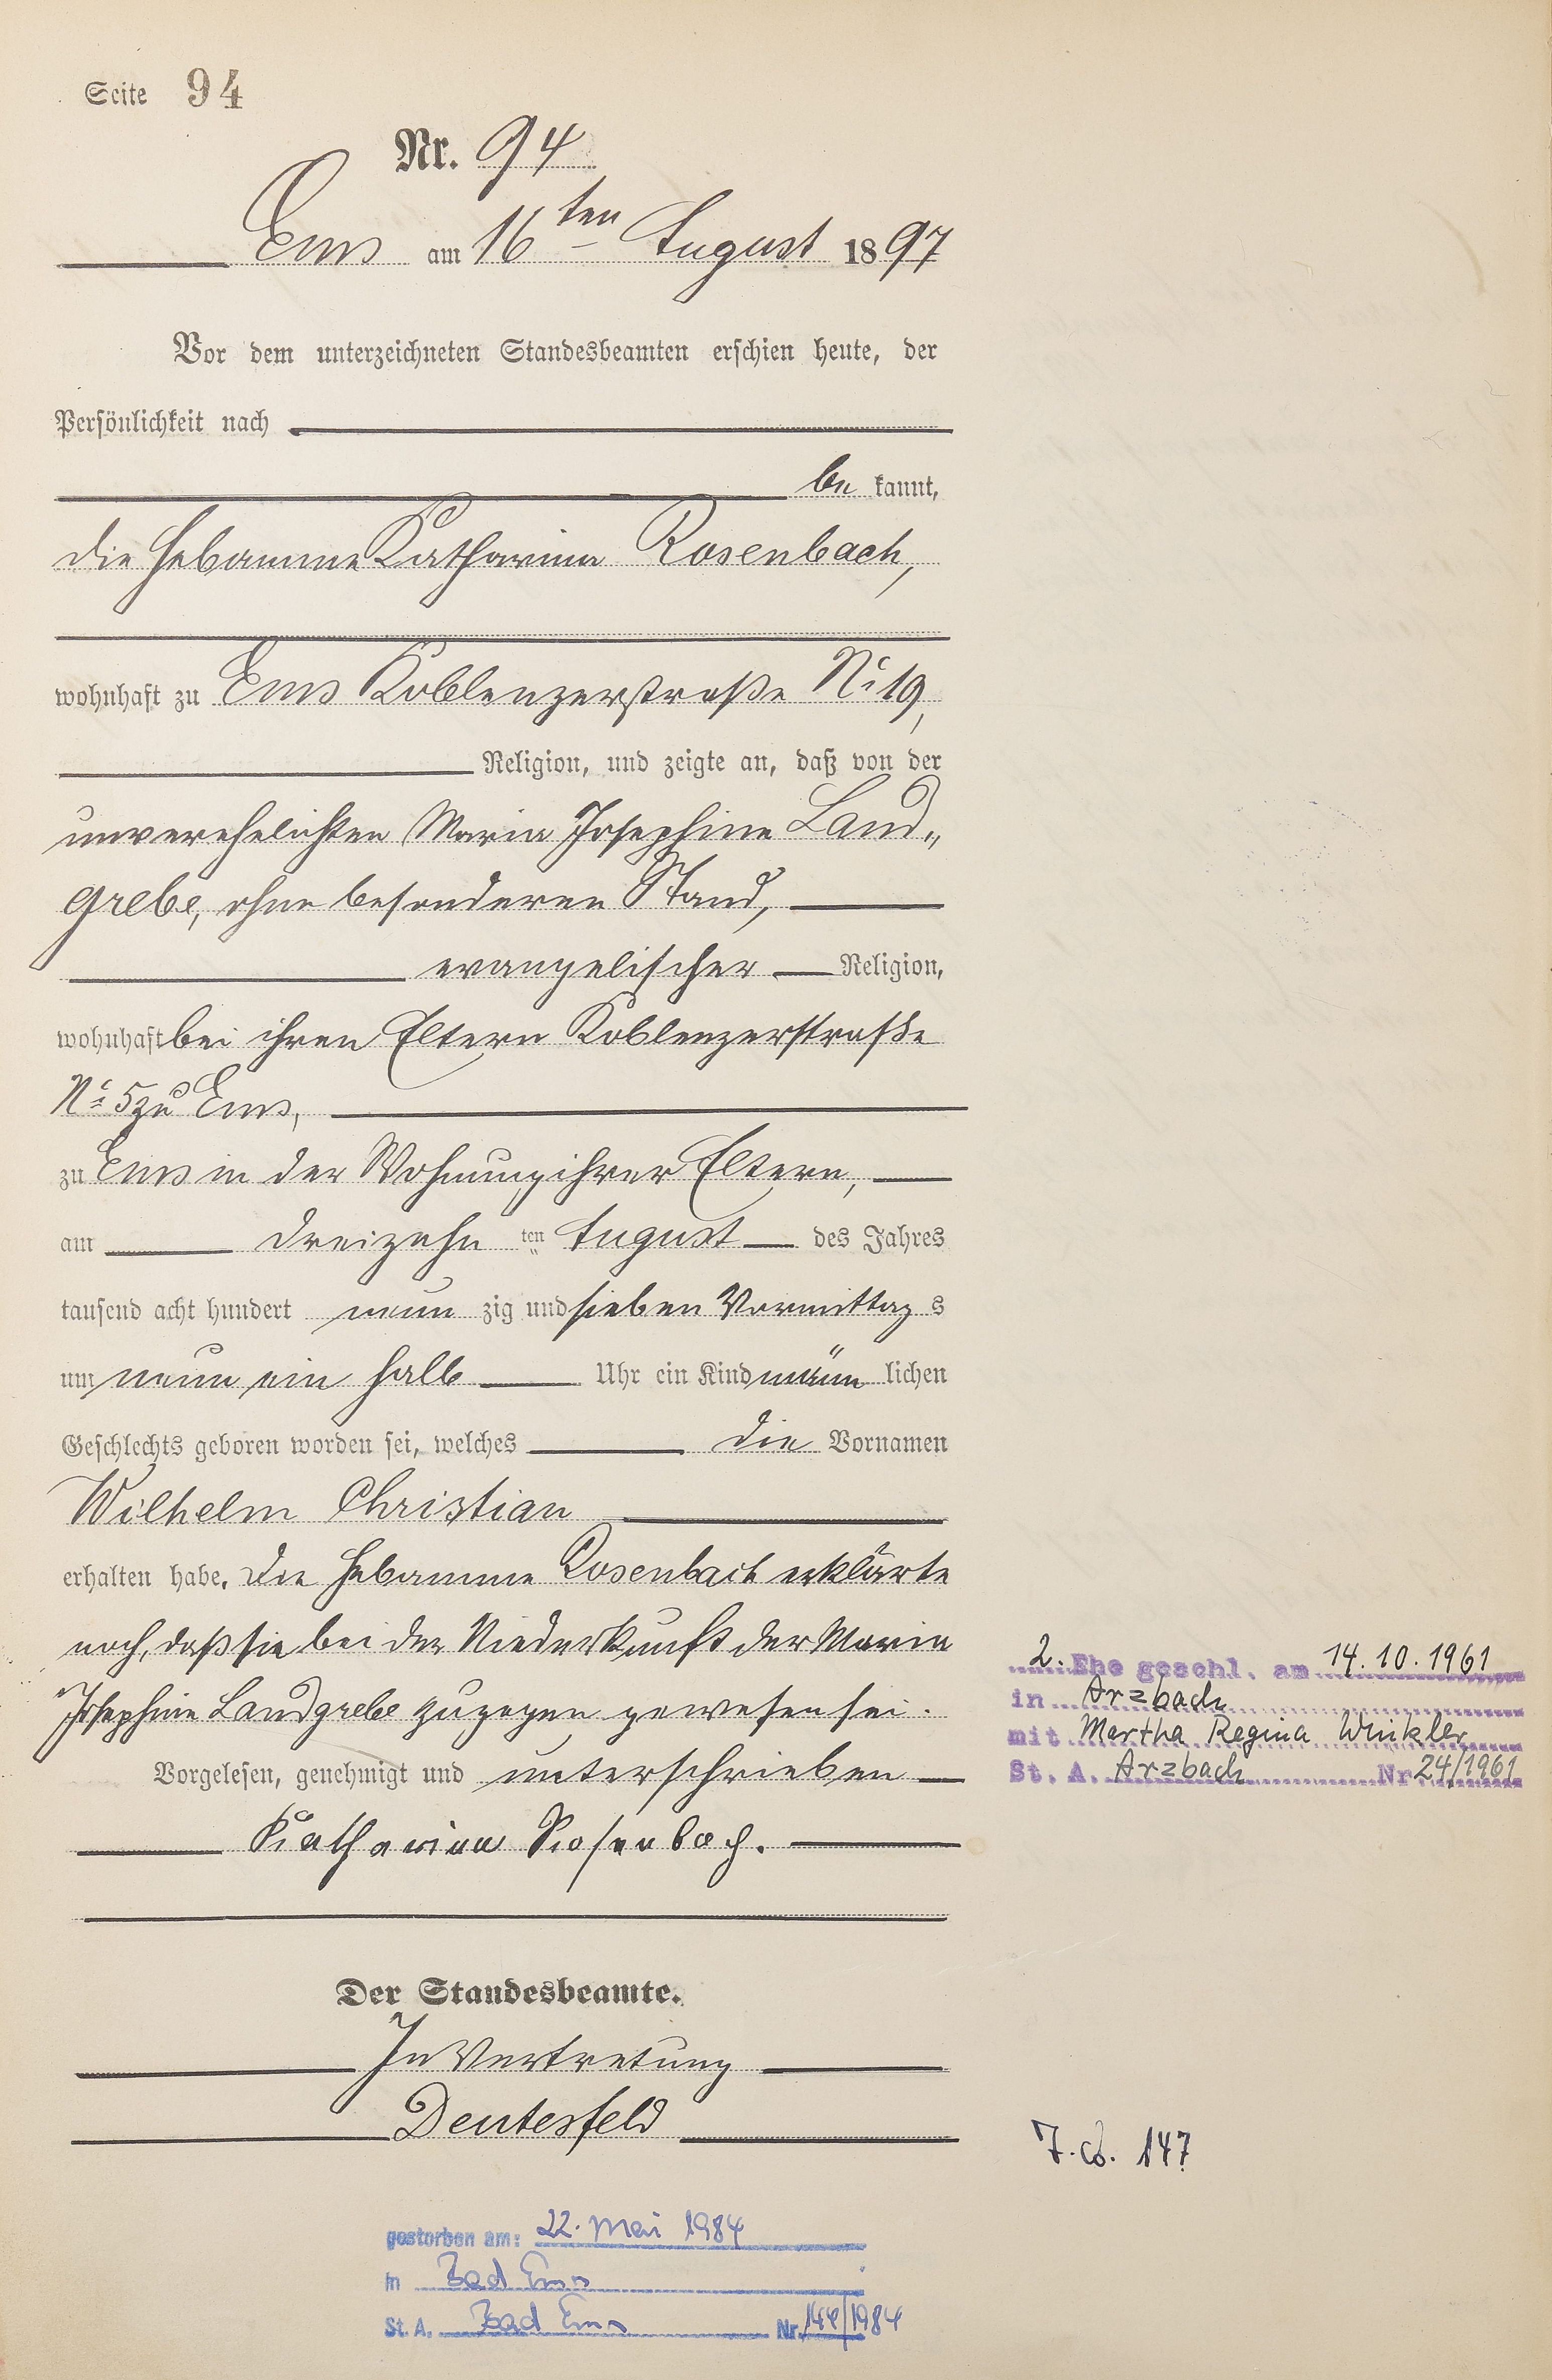 Seite 94
Nr. 94
Ems am 16ten August 1897
Vor dem unterzeichneten Standesbeamten erschien heute, der
Persönlichkeit nach
be kannt,
die Hebamme Katharina Rosenbach,
wohnhaft zu Ems Koblenzerstraße No 19,
Religion, und zeigte an, daß von der
unverehelichten Maria Josephine Land„
grebe, ohne besonderen Stand,
evangelischer Religion,
wohnhaft bei ihren Eltern Koblenzerstraße
No 5 zu Ems,
zu Ems in der Wohnung ihrer Eltern,
am dreizehn ten August des Jahres
tausend acht hundert neun zig und sieben Vormittag s
um neun ein halb Uhr ein Kind männ lichen
Geschlechts geboren worden sei, welches die Vornamen
Wilhelm Christian
erhalten habe. Die Hebamme Rosenbach erklärte
noch, daß sie bei der Niederkunft der Maria
Josephine Landgrebe zugegen gewesen sei.
Vorgelesen, genehmigt und unterschrieben
Katharina Rosenbach.
Der Standesbeamte.
In Vertretung
Deutesfeld
gestorben am: 22. Mai 1984
in Bad Ems
St. A. Bad Ems Nr. 144/1984
2. Ehe geschl. am 14.10.1961
in Arzbach
mit Martha Regina Winkler
St. A. Arzbach Nr. 24/1961
147